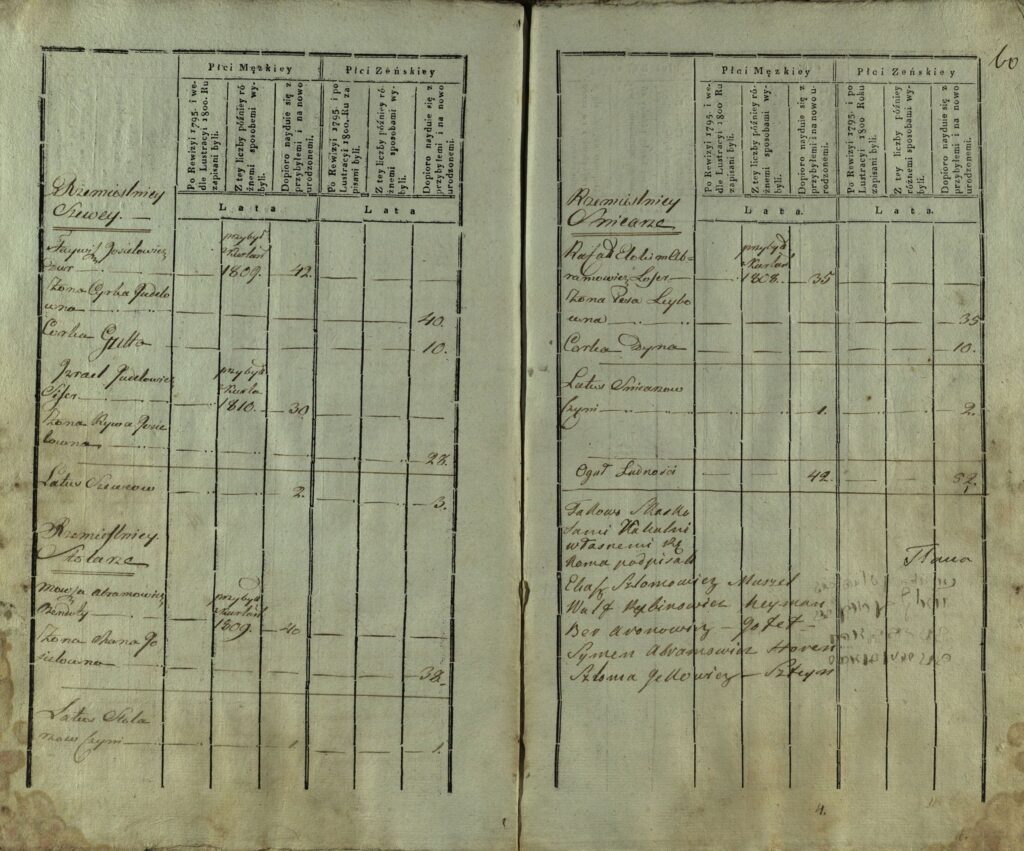 Płci Męzkiey
Płci Zeńskiey
Po Rewizyi 1795. i we-
dle Lustracyi 1800. Ru
zapisani byli.
Z tey liczby poźniey ró-
żnemi sposobami wy-
byli.
Dopioro nayduie się z
przybyłemi i na nowo
urodzonemi.
Po Rewizyi 1795. i po
Lustracyi 1800. Ru za-
pisani byli.
Z tey liczby poźniey ró-
żnemi sposobami wy-
byli.
Dopioro nayduie się z
przybyłemi i na nowo
urodzonemi.
Lata
Lata
Rzemiestnicy
Szewcy
Josielowicz
przybył
1809. 42.
Zona Cyrka Judelo
wna
40.
Corka Gutta 10.
Izrael Judelowicz
przybył
1810. 30
Zona Rywa Josie
lowna
28.
Latus Szewcow 2. 3.
Rzemiestnicy
Stolarze
Mowsza Abramowicz
przybył
1809. 40
Zona Chana Jo
sielowna
38.
Latus Stola
rzow Czyni 1 1.
60
Płci Męzkiey
Płci Zeńskiey
Po Rewizyi 1795. i we-
dle Lustracyi 1800 Ru
zapisani byli.
Z tey liczby poźniey ró-
żnemi sposobami wy-
byli.
Dopioro nayduie się z
przybyłemi i na nowo u-
rodzonemi.
Po Rewizyi 1795. i po
Lustracyi 1800 Roku
zapisani byli.
Z tey liczby poźniey
różnemi sposobami wy-
byli.
Dopioro nayduie się z
przybyłemi i na nowo
urodzonemi.
Lata.
Lata.
Rzemiestnicy
Ab-
przybył
ramowicz Loser 1808. 35
Zona Pesa Leybo
wna
35
Corka Dyna 10.
Latus
Czyni 1. 2.
Oguł Ludności 42. 52.
Takowo Skasko
Sami Kahalni
własnemi Rę
koma podpisali
Szlomowicz
Wulf Rubinowicz Heyman
Ber Aronowicz
Symen Abramowicz
Szloma Jellowicz Szteyn
4.